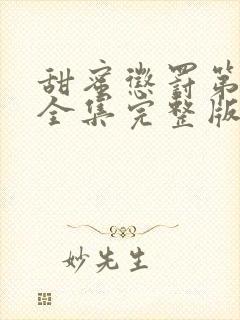 甜蜜懲罰第
全集完整版
妙先生